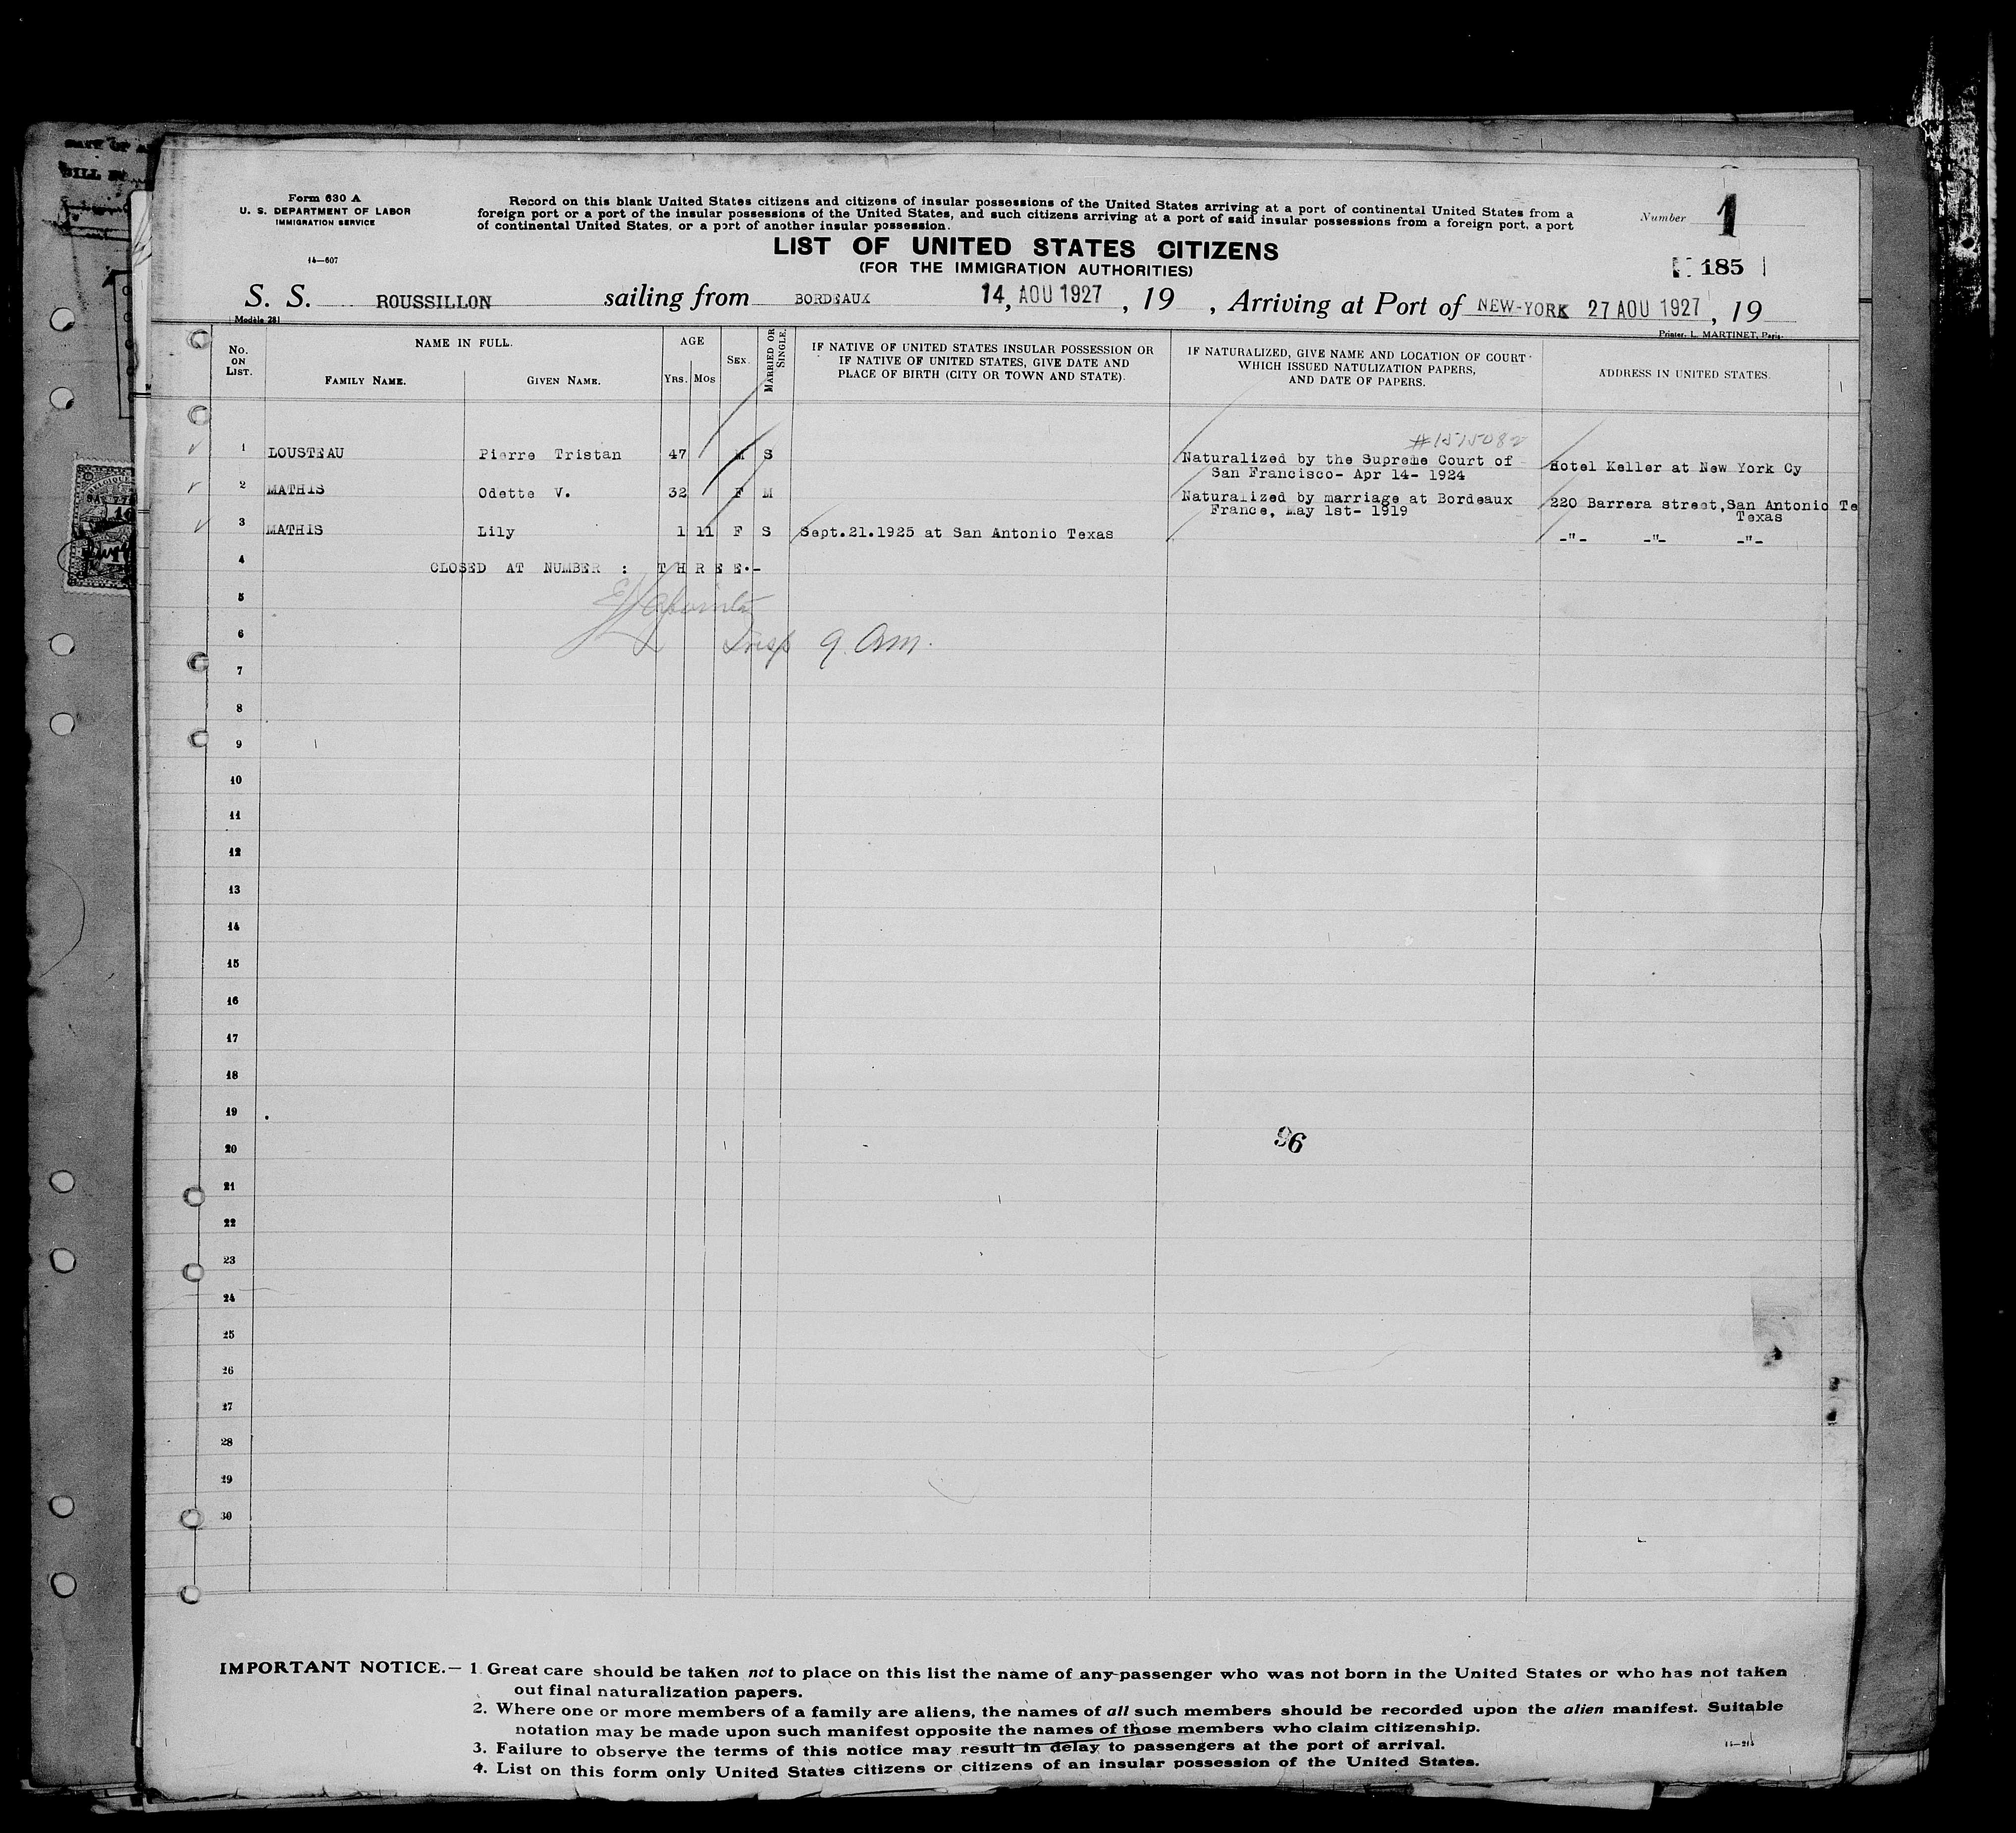 Form 630 A
U. S. DEPARTMENT OF LABOR
IMMIGRATION SERVICE
14—607
Record on this blank United States citizens and citizens of insular possessions of the United States arriving at a port of continental United States from a
foreign port or a port of the insular possessions of the United States, and such citizens arriving at a port of said insular possessions from a foreign port, a port
of continental United States, or a port of another insular possession.
Number 1
LIST OF UNITED STATES CITIZENS
(FOR THE IMMIGRATION AUTHORITIES)
185
S. S. ROUSSILLON sailing from BORDEAUX 14, AOU 1927, 19 , Arriving at Port of NEW-YORK 27 AOU 1927, 19
Modèle 281
Printer, L. MARTINET, Paris.
No. ON LIST.
NAME IN FULL.
FAMILY NAME.
GIVEN NAME.
AGE
YRS. MOS
SEX.
MARRIED OR SINGLE.
IF NATIVE OF UNITED STATES INSULAR POSSESSION OR
IF NATIVE OF UNITED STATES, GIVE DATE AND
PLACE OF BIRTH (CITY OR TOWN AND STATE).
IF NATURALIZED, GIVE NAME AND LOCATION OF COURT
WHICH ISSUED NATULIZATION PAPERS,
AND DATE OF PAPERS.
ADDRESS IN UNITED STATES.
#1575082
1 LOUSTEAU Pierre Tristan 47 M S Naturalized by the Supreme Court of Hotel Keller at New York Cy
San Francisco- Apr 14- 1924
2 MATHIS Odette V. 32 F M Naturalized by marriage at Bordeaux 220 Barrera street,San Antonio Te
France, May 1st- 1919 Texas
3 MATHIS Lily 1 11 F S Sept.21.1925 at San Antonio Texas -"- -"- -"-
4 CLOSED AT NUMBER : T H R E E.-
5
6 Insp 9. am.
7
8
9
10
11
12
13
14
15
16
17
18
19
20 96
21
22
23
24
25
26
27
28
29
30
IMPORTANT NOTICE.— 1. Great care should be taken not to place on this list the name of any passenger who was not born in the United States or who has not taken
out final naturalization papers.
2. Where one or more members of a family are aliens, the names of all such members should be recorded upon the alien manifest. Suitable
notation may be made upon such manifest opposite the names of those members who claim citizenship.
3. Failure to observe the terms of this notice may result in delay to passengers at the port of arrival.
4. List on this form only United States citizens or citizens of an insular possession of the United States.